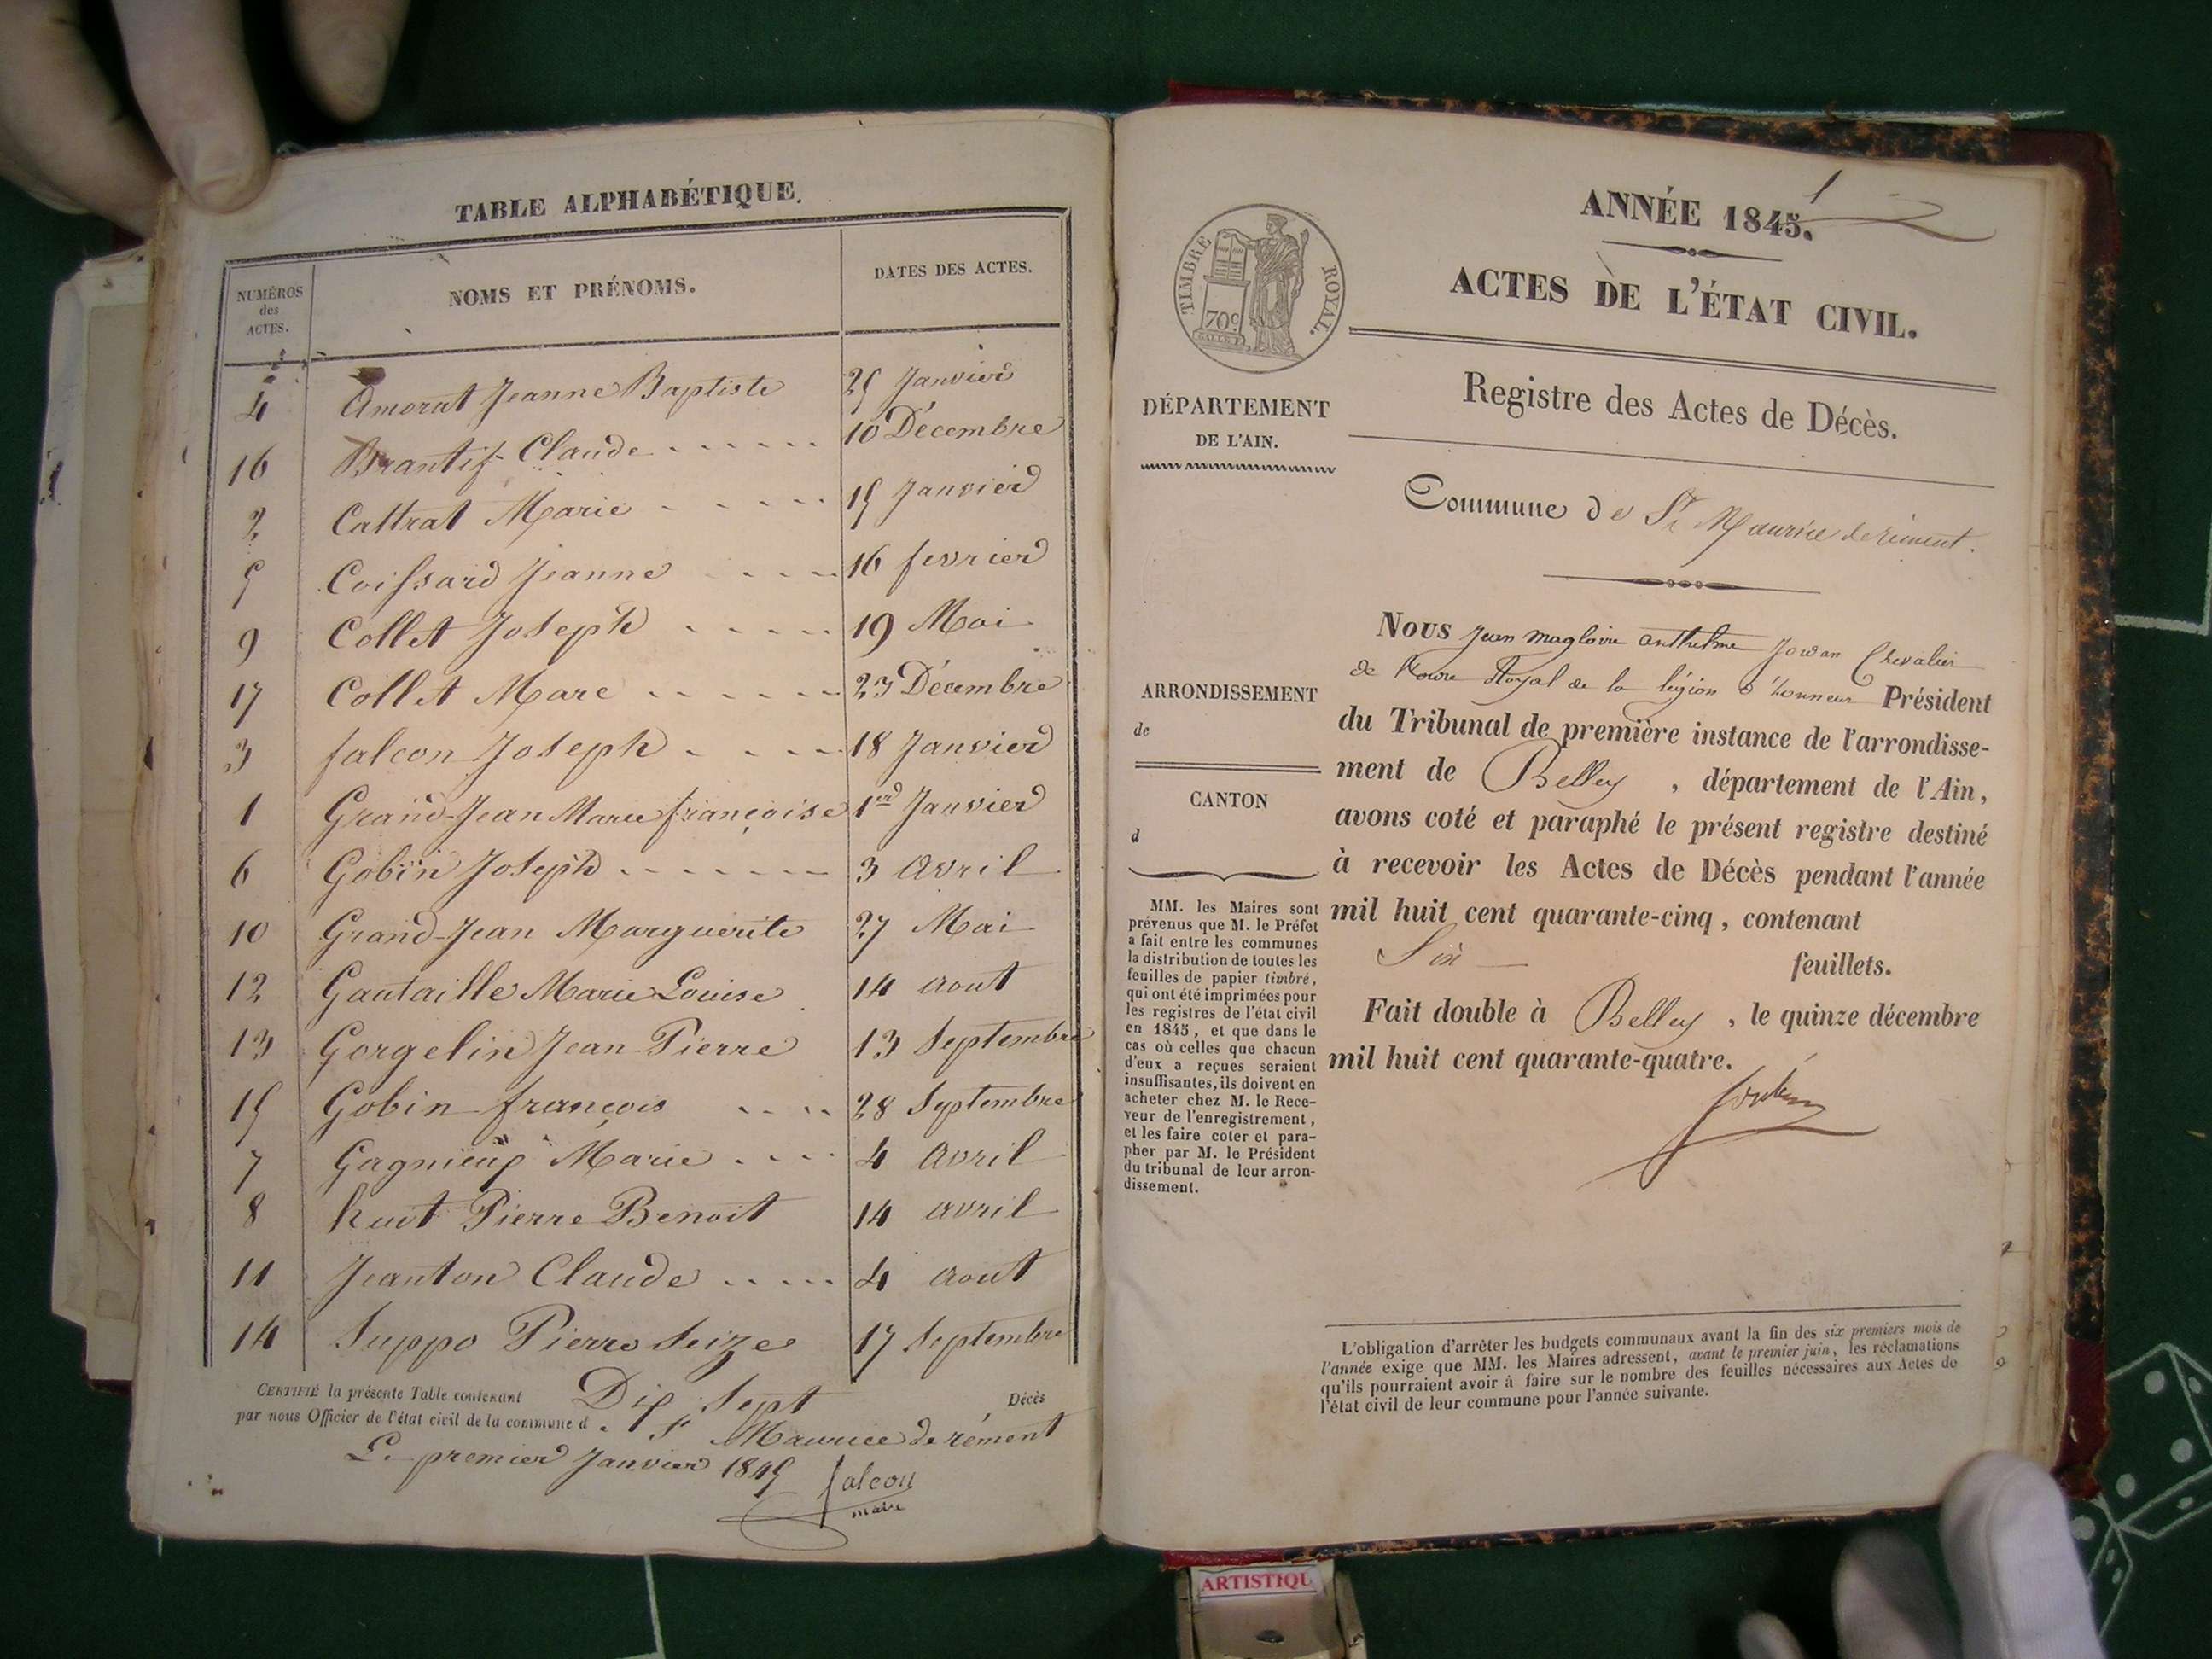 TABLE ALPHABÉTIQUE.
NUMÉROS
des
ACTES.
NOMS ET PRÉNOMS.
DATES DES ACTES.
4 Amorat Jeanne Baptiste 25 Janvier
16 Brantif Claude 10 Décembre
2 Cattrat Marie 15 Janvier
5 Coissard Jeanne 16 fevrier
9 Collet Joseph 19 Mai
17 Collet Marc 23 Décembre
3 falcon Joseph 18 Janvier
1 Grand-Jean Marie françoise 1er Janvier
6 Gobin Joseph 3 avril
10 Grand-Jean Marguerite 27 Mai
12 Gautaille Marie Louise 14 aout
13 Gorgelin Jean Pierre 13 Septembre
15 Gobin françois 28 Septembre
7 Gagnieux Marie 4 avril
8 huit Pierre Benoit 14 avril
11 Jeanton Claude 4 aout
14 Suppo Pierre Seize 17 Septembre
CERTIFIÉ la présente Table contenant Dix Sept Décès
par nous Officier de l'état civil de la commune d. St Maurice de rément
Le premier Janvier 1845 falcon
maire
ANNÉE 1845. 1
ACTES DE L'ÉTAT CIVIL.
Registre des Actes de Décès.
TIMBRE ROYAL.
70c
DÉPARTEMENT
DE L'AIN.
Commune de St Maurice de rément.
ARRONDISSEMENT
de
CANTON
d
MM. les Maires sont
prévenus que M. le Préfet
a fait entre les communes
la distribution de toutes les
feuilles de papier timbré,
qui ont été imprimées pour
les registres de l'état civil
en 1845, et que dans le
cas où celles que chacun
d'eux a reçues seraient
insuffisantes, ils doivent en
acheter chez M. le Rece-
veur de l'enregistrement,
et les faire coter et para-
pher par M. le Président
du tribunal de leur arron-
dissement.
Nous Jean magloire anthelme Chevalier
de Royal de la légion d'honneur Président
du Tribunal de première instance de l'arrondisse-
ment de Belley, département de l'Ain,
avons coté et paraphé le présent registre destiné
à recevoir les Actes de Décès pendant l'année
mil huit cent quarante-cinq, contenant
Six feuillets.
Fait double à Belley, le quinze décembre
mil huit cent quarante-quatre.
L'obligation d'arrêter les budgets communaux avant la fin des six premiers mois de
l'année exige que MM. les Maires adressent, avant le premier juin, les réclamations
qu'ils pourraient avoir à faire sur le nombre des feuilles nécessaires aux Actes de
l'état civil de leur commune pour l'année suivante.
ARTISTIQU